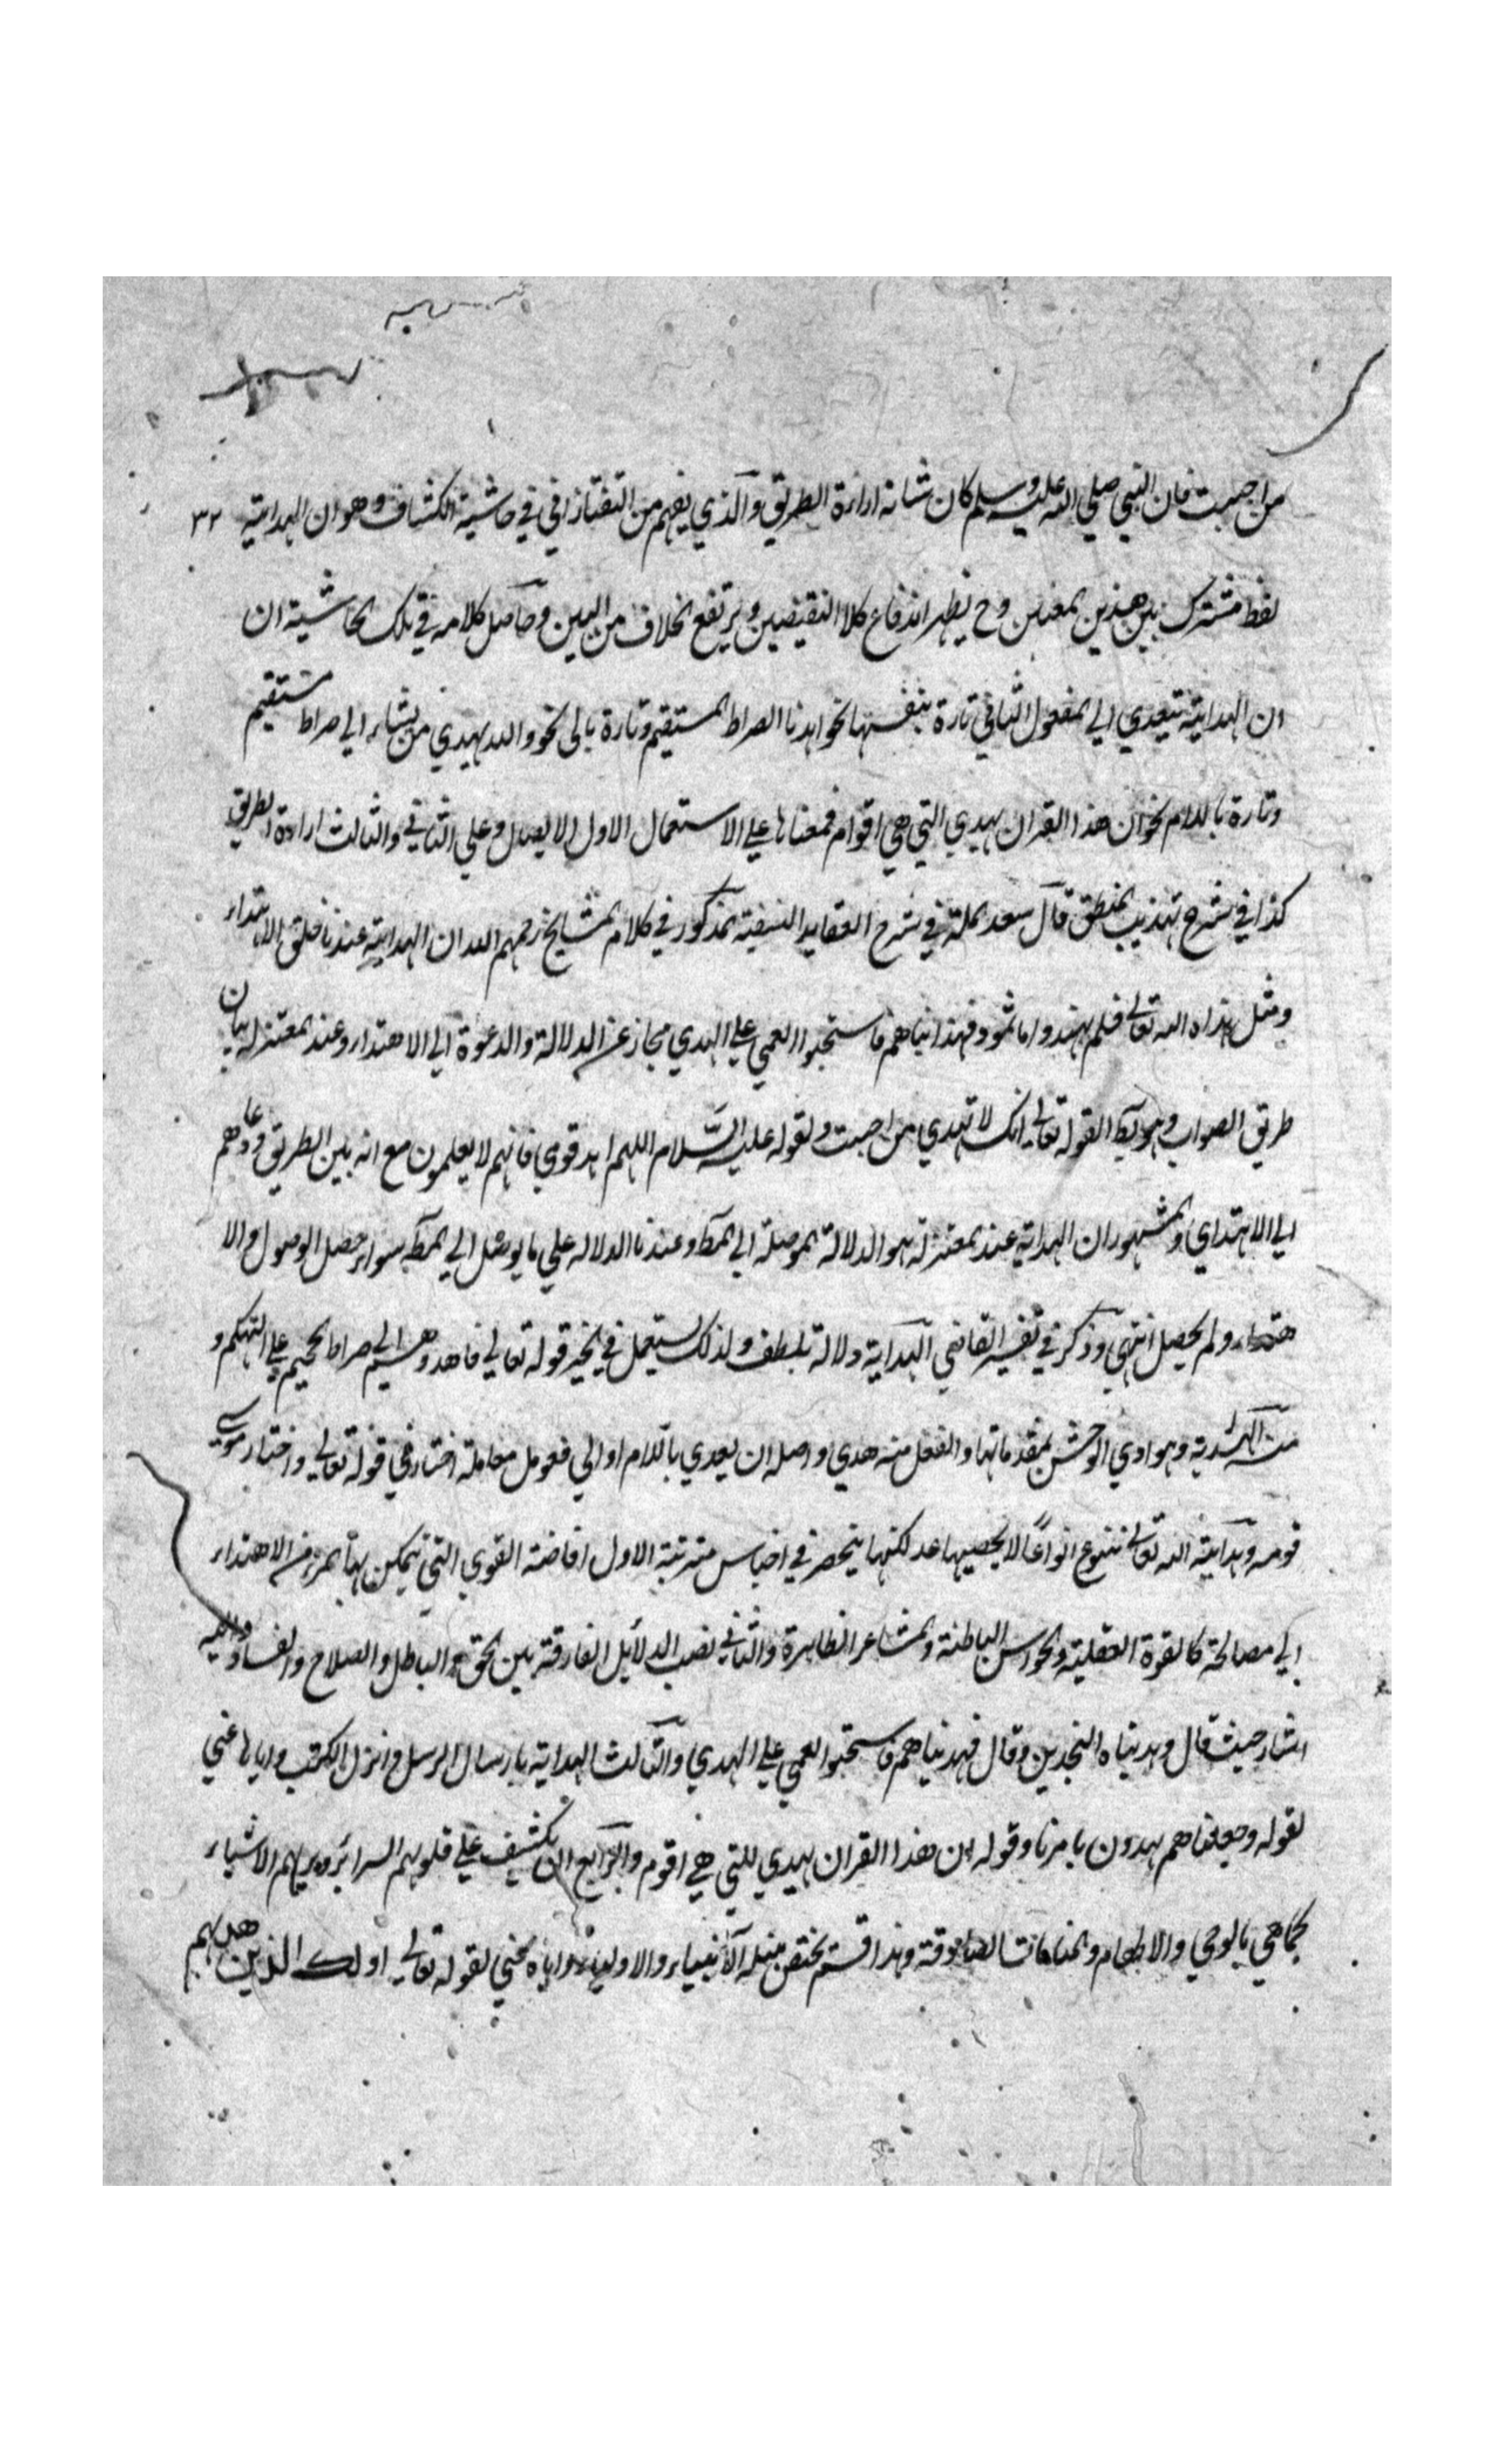 من احببت فان النبي صلي الله عليه وسلم كان شانه اراءة الطريق والذي يفهم من التفتازاني في حاشية الكشاف وهو ان الهداية ٣٢
لفظ مشترك بين هذين المعنين وح يظهر اندفاع كلا النقيضين ويرتفع الخلاف من البين وحاصل كلامه في تلك الحاشية ان
ان الهداية تتعدي الي المفعول الثاني تارة بنفسها نحو اهدنا الصراط المستقيم وتارة بالي نحو والله يهدي من يشاء الي صراط مستقيم
وتارة باللام نحو ان هذا القران يهدي التي هي اقوام فمعناها علي الاستعمال الاول الايصال وعلي الثاني والثالث اراءة الطريق
كذا في شرح تهذيب المنطق قال سعد الملة في شرح العقايد النسفية المذكور في كلام المشايخ رحمهم الله ان الهداية عندنا خلق الاهتداء
ومثل هداه الله تعالي فلم يهتد واما ثمود فهديناهم فاستحبوا العمي علي الهدي مجاز عن الدلالة والدعوة الي الاهتداء وعند المعتزلة بيان
طريق الصواب وهو بط لقوله تعالي انك لا تهدي من احببت ولقوله عليه السلام اللهم اهد قومي فانهم لا يعلمون مع انه بين الطريق ودعاهم
الي الاهتداي والمشهور ان الهداية عند المعتزلة هو الدلالة الموصلة الي المط وعندنا الدلالة علي ما يوصل الي المط سواء حصل الوصول والا
هتداء ولم يحصل انتهي وذكر في تفسير القاضي الهداية دلالة بلطف ولذلك يستعمل في الخير قوله تعالي فاهدوهم الي صراط الجحيم علي التهكم و
منه الهدية وهوادي الوحش لمقدماتها والفعل منه هدي واصله ان يعدي باللام او الي فعومل معاملة اختار في قوله تعالي واختار موسي
قومه وهداية الله تعالي تتنوع انواعًا لا يحصيها عد لكنها ينحصر في اجناس مترتبة الاول افاضة القوي التي يتمكن بها المرء من الاهتداء
الي مصالحة كالقوة العقلية والحواس الباطنة والمشاعر الظاهرة والثاني نصب الدلائل الفارقة بين الحق والباطل والصلاح والفساد واليه
اشار حيث قال وهديناه النجدين وقال فهديناهم فاستحبوا العمي علي الهدي والثالث الهداية بارسال الرسل وانزل الكتب واياها عني
لقوله وجعلناهم يهدون بامرنا وقوله ان هذا القران يهدي للتي هي اقوم والرابع ان يكشف علي قلوبهم السرائر ويريهم الاشياء
كماهي بالوحي والالهام والمنامات الصادقة وهذا قسم يختص بنيله الانبياء والاولياء واياه عني لقوله تعالي اولك الذين هديهم